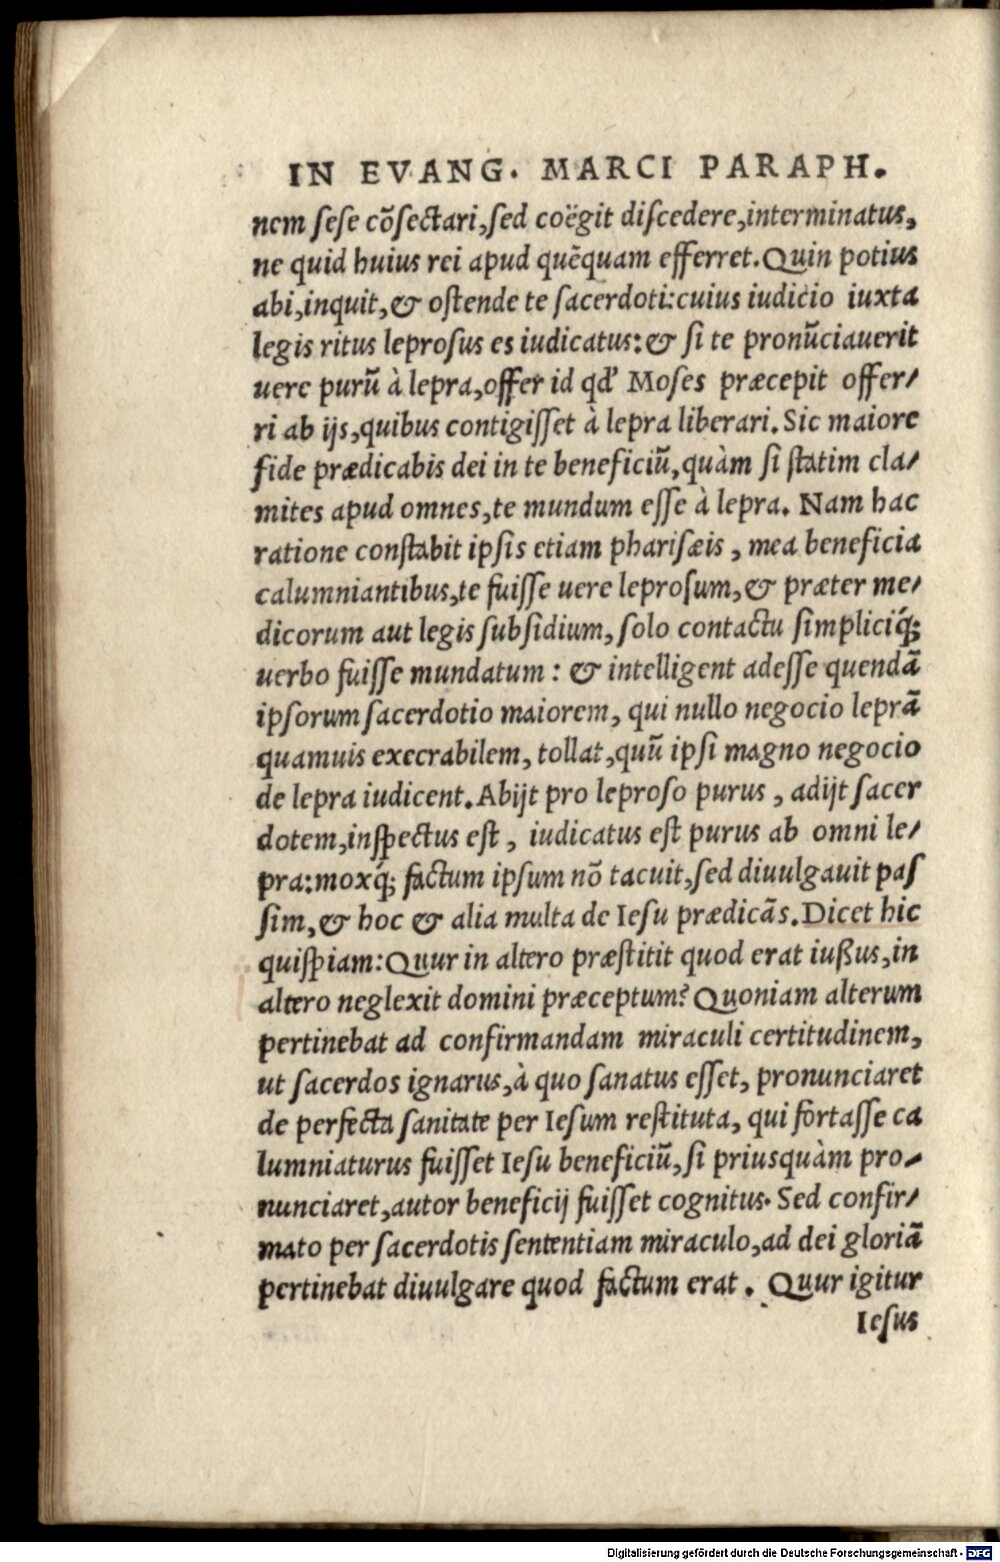 IN EVANG. MARCI PARAPH.
nem ſeſe cõſectari,ſed coëgit diſcedere,interminatus,
ne quid huius rei apud quẽquam efferret.Quin potius
abi,inquit,& oſtende te ſacerdoti:cuius iudicio iuxta
legis ritus leproſus es iudicatus:& ſi te pronũciauerit
uere purũ à lepra,offer id qđ Moſes præcepit offer/
ri ab ijs,quibus contigiſſet à lepra liberari.Sic maiore
fide prædicabis dei in te beneficiũ,quàm ſi ſtatim cla/
mites apud omnes,te mundum eſſe à lepra. Nam hac
ratione conſtabit ipſis etiam phariſæis , mea beneficia
calumniantibus,te fuiſſe uere leproſum,& præter me/
dicorum aut legis ſubſidium, ſolo contactu ſimpliciq́;
uerbo fuiſſe mundatum : & intelligent adeſſe quendã
ipſorum ſacerdotio maiorem, qui nullo negocio leprã
quamuis execrabilem, tollat,quũ ipſi magno negocio
de lepra iudicent.Abijt pro leproſo purus , adijt ſacer
dotem,inſpectus eſt , iudicatus eſt purus ab omni le/
pra:moxq́; factum ipſum nõ tacuit,ſed diuulgauit paſ
ſim,& hoc & alia multa de Ieſu prædicãs.Dicet hic
quiſpiam:Quur in altero præſtitit quod erat iußus,in
altero neglexit domini præceptum? Quoniam alterum
pertinebat ad confirmandam miraculi certitudinem,
ut ſacerdos ignarus,à quo ſanatus eſſet, pronunciaret
de perfecta ſanitate per Ieſum reſtituta, qui fortaſſe ca
lumniaturus fuiſſet Ieſu beneficiũ,ſi priusquàm pro/
nunciaret,autor beneficij fuiſſet cognitus. Sed confir/
mato per ſacerdotis ſententiam miraculo,ad dei gloriã
pertinebat diuulgare quod factum erat . Quur igitur
Ieſus
Digitalisierung gefördert durch die Deutsche Forschungsgemeinschaft - DFG